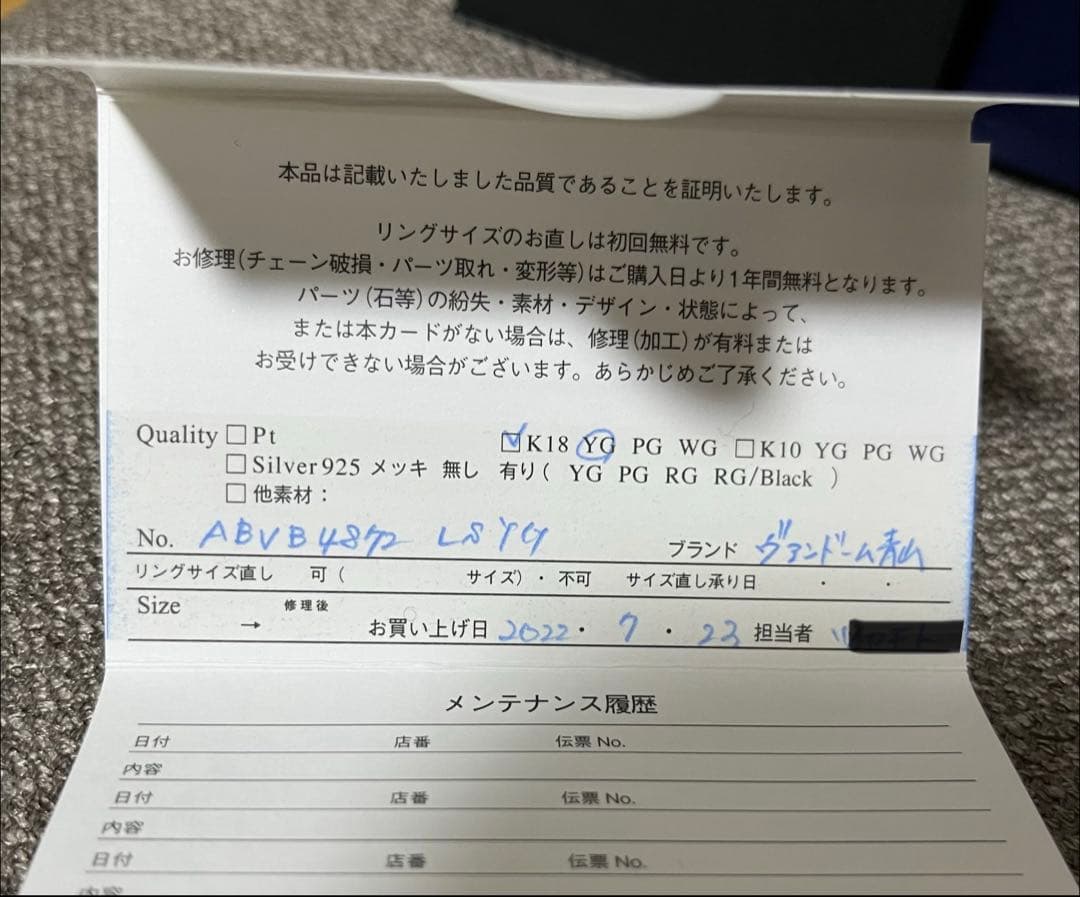 本品は記載いたしました品質であることを証明いたします。
リングサイズのお直しは初回無料です。
お修理(チェーン破損・パーツ取れ・変形等)はご購入日より1年間無料となります。
パーツ(石等)の紛失・素材・デザイン・状態によって、
または本カードがない場合は、修理(加工)が有料または
お受けできない場合がございます。あらかじめご了承ください。
Quality □Pt ☑K18 YG PG WG □K10 YG PG WG
□Silver925 メッキ 無し 有り( YG PG RG RG/Black )
□他素材:
No. ABVB4872 LSYG ブランド ヴァンドーム青山
リングサイズ直し 可( サイズ)・不可 サイズ直し承り日 ・ ・
Size → 修理後 お買い上げ日 2022・7・23 担当者
メンテナンス履歴
日付 店番 伝票 No.
内容
日付 店番 伝票 No.
内容
日付 店番 伝票 No.
内容